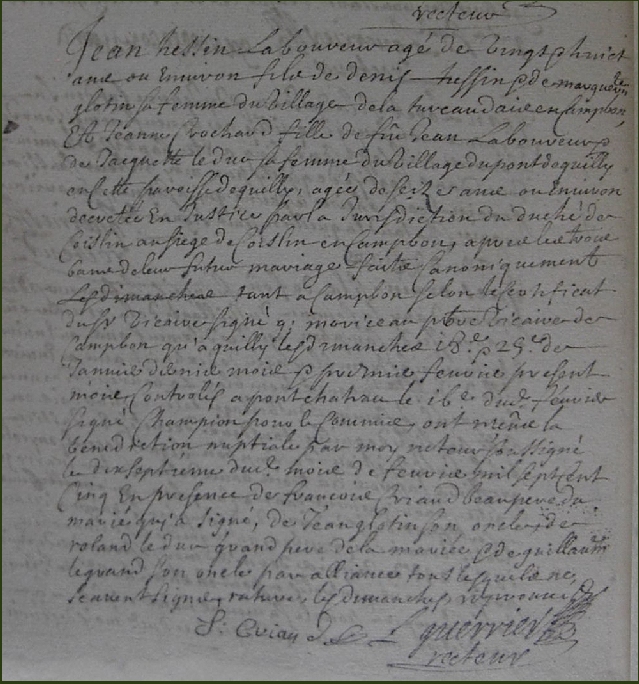 recteur
Jean hessin Laboureur agé de vingt huict
ans ou Environ fils de denis hessin & de marguerite
glotin sa femme du village de la turcaudais en Campbon,
Et Jeanne Rochard fille de feu Jean Laboureur &
de Jacquette le duc sa femme du village du pont de quilly
en Cette paroisse de quilly, agée de seize ans ou Environ
decretée En Justice par la Jurisdiction du duché de
Coislin au siege de Coislin en Campbon, apres les trois
bans de leur futur mariage faits Canoniquement
Les dimanches tant a Campbon selon le Certificat
du Sr vicaire signé moriceau pbtre vicaire de
Campbon qu'a quilly les dimanches 18e & 25e de
Janvier dernier mois & premier feuvrier present
mois, Controlés a pontchateau le 16e dud. feuvrier
signé Champion pour le Commis, ont
benediction nuptiale par moy recteur soussigné
le dixseptième dud. mois de feuvrier mil sept cent
Cinq En presence de francois Eriaud beau pere de la
mariée qui a signé, de Jean glotin son oncle, de
roland le duc grand pere de la mariée & de guillaume
legrand son oncle par alliance tous lesquels ne
scavent signer, les dimanches
guerrier
recteur